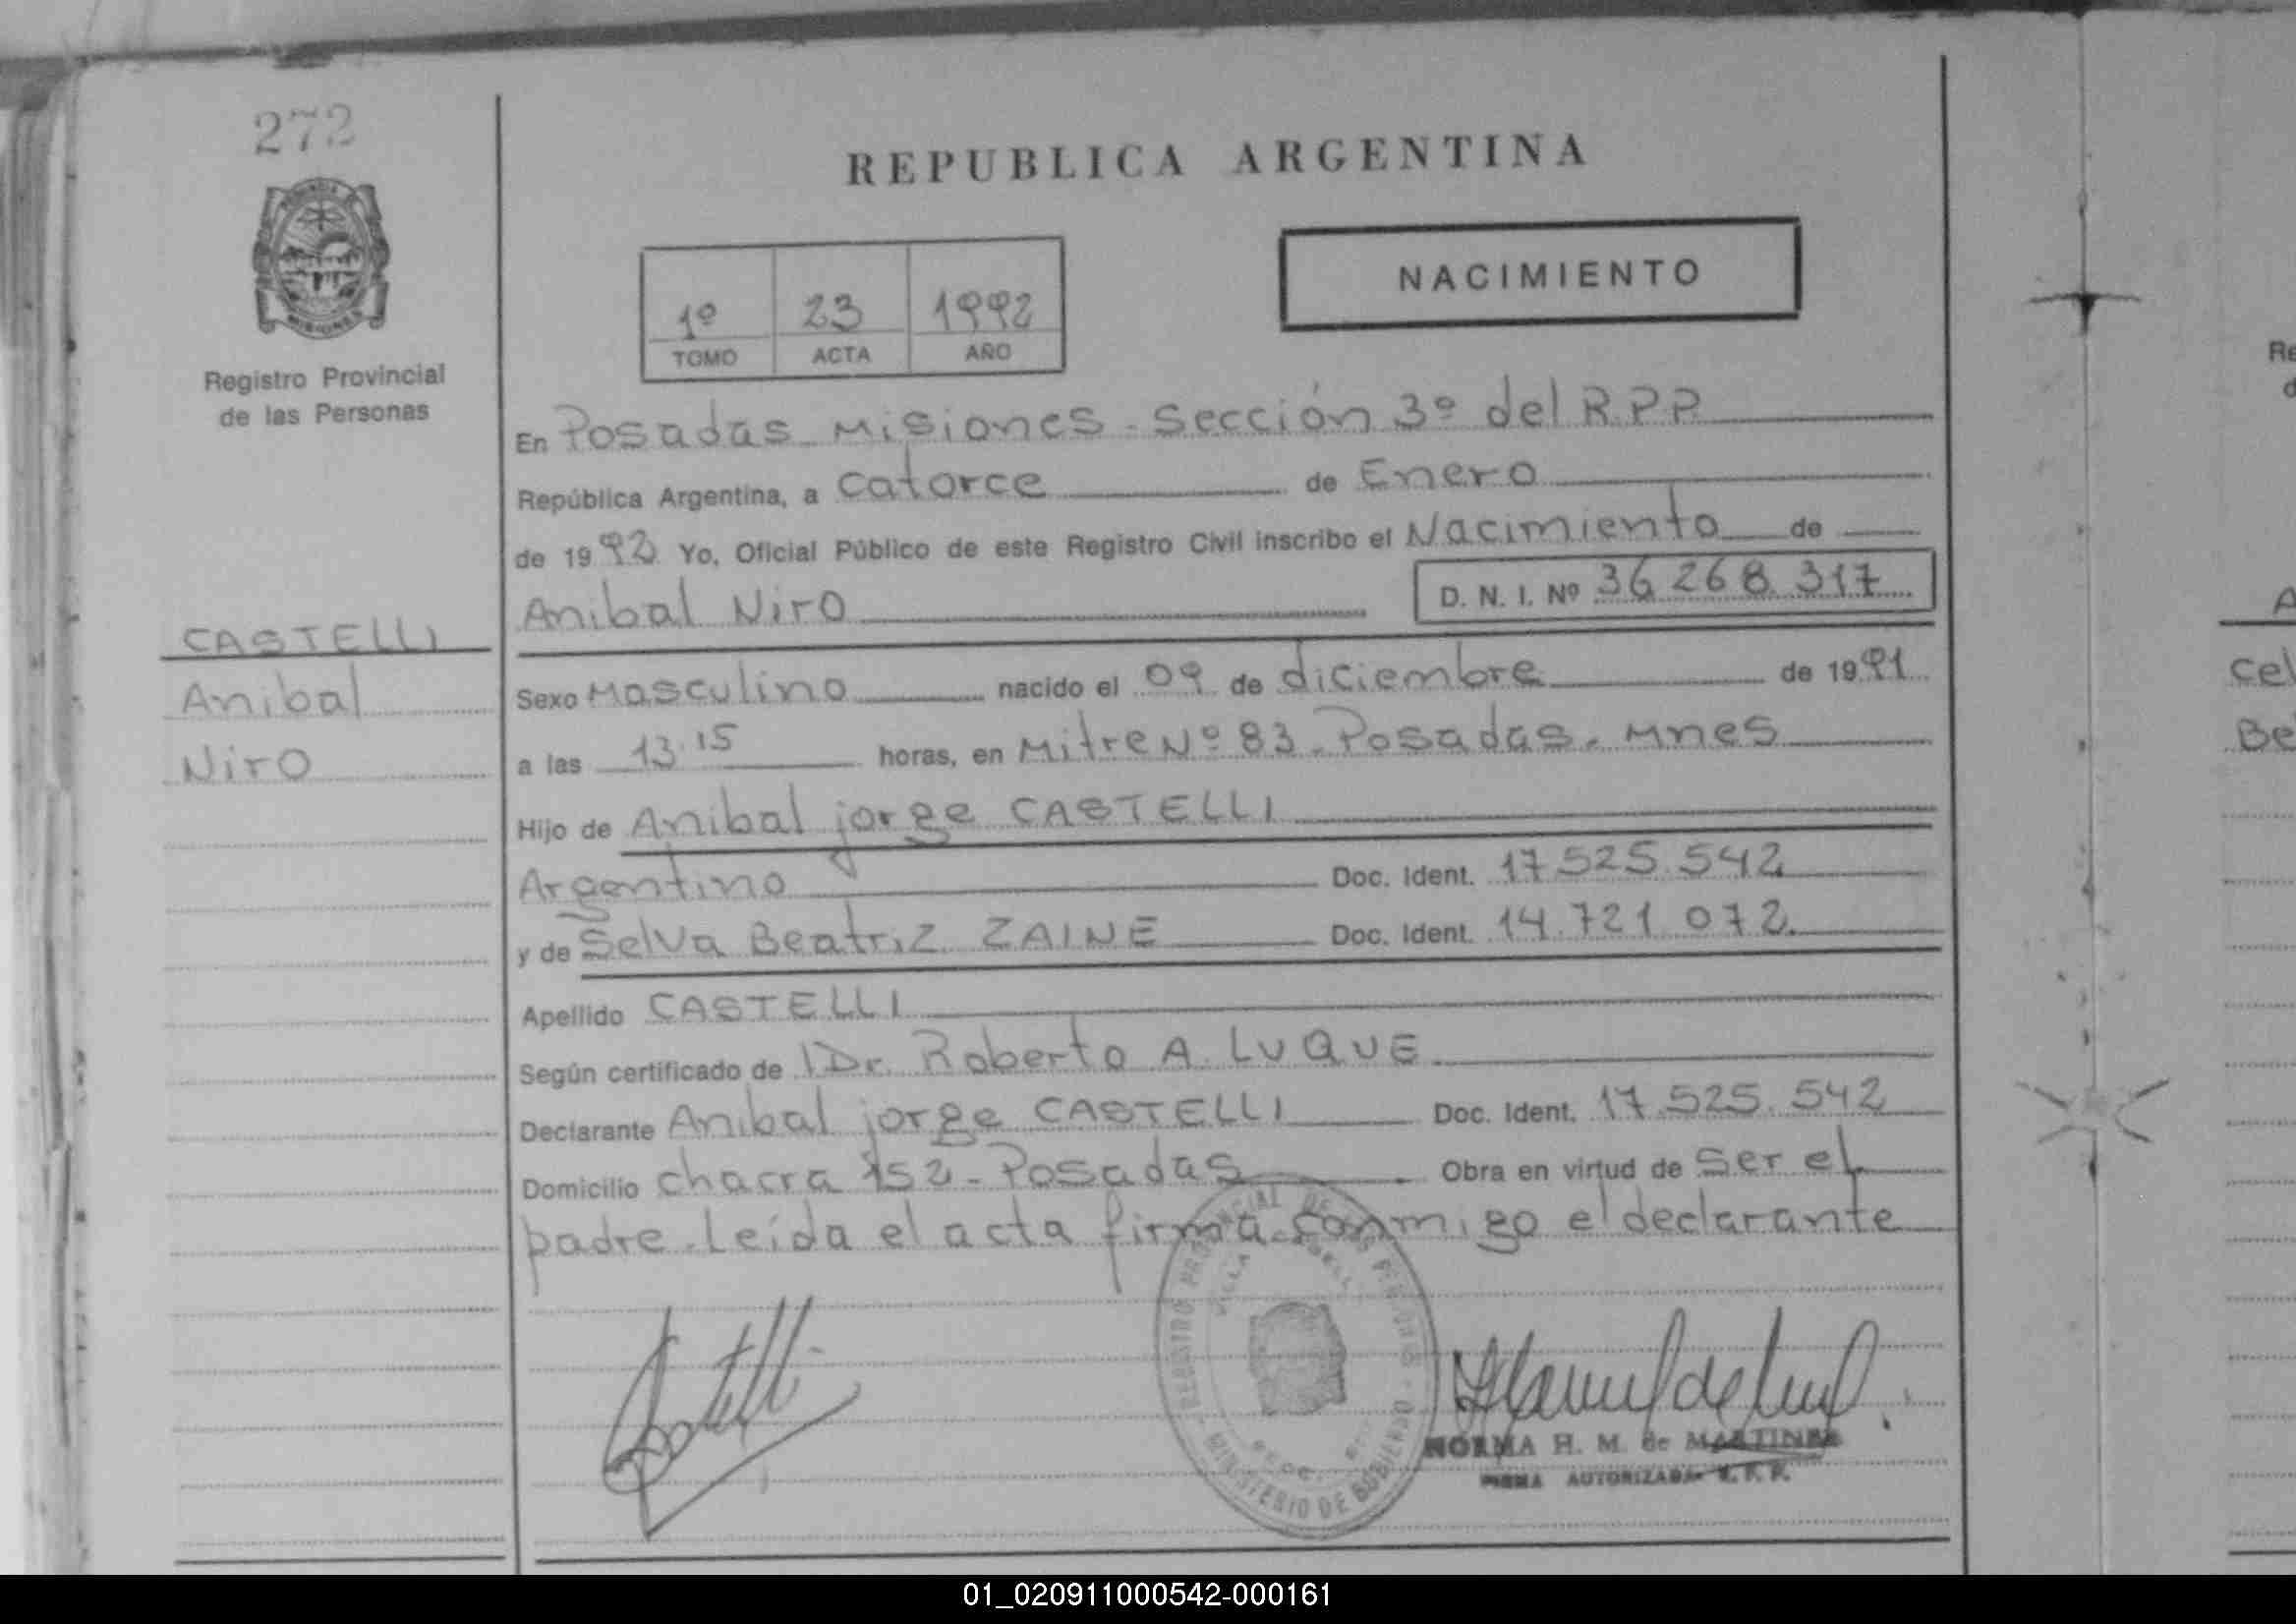 272
REPUBLICA ARGENTINA
PROVINCIA
MISIONES
Registro Provincial
de las Personas
1º 23 1992
TOMO ACTA AÑO
NACIMIENTO
En Posadas Misiones - Sección 3º del R.P.P.
República Argentina, a catorce de Enero
de 1992 Yo, Oficial Público de este Registro Civil inscribo el Nacimiento de
Anibal Niro D. N. I. Nº 36 268 317
CASTELLI
Anibal
Niro
Sexo Masculino nacido el 09 de diciembre de 1991
a las 13.15 horas, en Mitre Nº 83 - Posadas - Mnes
Hijo de Anibal jorge CASTELLI
Argentino Doc. Ident. 17.525.542
y de Selva Beatriz ZAINE Doc. Ident. 14.721.072.
Apellido CASTELLI
Según certificado de l Dr. Roberto A. LUQUE
Declarante Anibal jorge CASTELLI Doc. Ident. 17.525.542
Domicilio chacra 152 - Posadas Obra en virtud de ser el
padre. Leída el acta firma conmigo el declarante
REGISTRO PROVINCIAL DE LAS PERSONAS
VILLA
MINISTERIO DE GOBIERNO
Castelli
NORMA H. M. de MARTINEZ
FIRMA AUTORIZADA R. P. P.
Re
d
A
Cel
Be
01_020911000542-000161